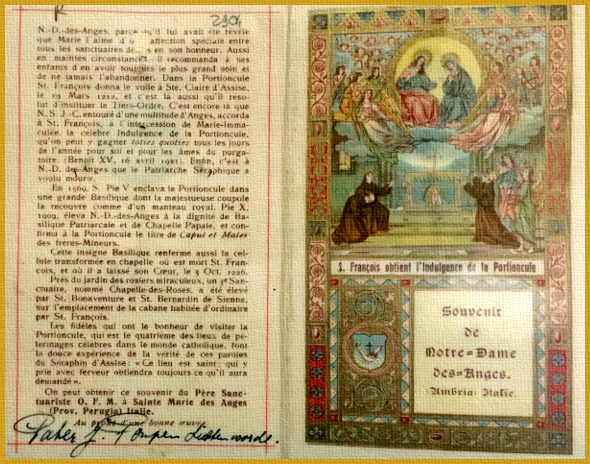 2304
N.-D.-des-Anges, parce qu'il lui avait été révélé
que Marie l'aime d'une affection spéciale entre
tous les sanctuaires de en son honneur. Aussi
en maintes circonstances, il recommanda à ses
enfants d'en avoir toujours le plus grand soin et
de ne jamais l'abandonner. Dans la Portioncule
St. François donna le voile à Ste. Claire d'Assise,
le 19 Mars 1212, et c'est là aussi qu'il réso-
lut d'instituer le Tiers-Ordre. C'est encore là que
N. S. J.-C. entouré d'une multitude d'Anges, accorda
à St. François, à l'intercession de Marie-Imma-
culée, la célèbre Indulgence de la Portioncule,
qu'on peut y gagner toties quoties tous les jours
de l'année pour soi et pour les âmes du purga-
toire. (Benoit XV, 16 avril 1921). Enfin, c'est à
N.-D. des Anges que le Patriarche Séraphique a
voulu mourir.
En 1569, S. Pie V enclava la Portioncule dans
une grande Basilique dont la majestueuse coupole
la recouvre comme d'un manteau royal. Pie X,
1909, éleva N.-D.-des-Anges à la dignité de Ba-
silique Patriarcale et de Chapelle Papale, et con-
firma à la Portioncule le titre de Caput et Mater
des frères-Mineurs.
Cette insigne Basilique renferme aussi la cel-
lule transformée en chapelle où est mort St. Fran-
çois, et où il a laissé son Cœur, le 3 Oct. 1226.
Près du jardin des rosiers miraculeux, un 3e San-
ctuaire, nommé Chapelle-des-Roses, a été élevé
par St. Bonaventure et St. Bernardin de Sienne,
sur l'emplacement de la cabane habitée d'ordinaire
par St. François.
Les fidèles qui ont le bonheur de visiter la
Portioncule, qui est le quatrième des lieux de pè-
lerinages célèbres dans le monde catholique, font
la douce expérience de la vérité de ces paroles
du Séraphin d'Assise: «Ce lieu est saint; qui y
prie avec ferveur obtiendra toujours ce qu'il aura
demandé».
On peut obtenir ce souvenir du Père Sanc-
tuariste O. F. M. à Sainte Marie des Anges
(Prov. Perugia) Italie.
Au profit d'une bonne œuvre
Pater J.
S. François obtient l'Indulgence de la Portioncule
Souvenir
de
Notre=Dame
des=Anges.
Umbria: Italie.